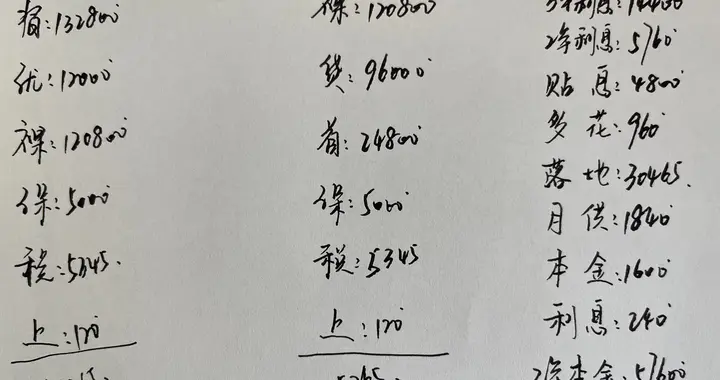 指:132800
优:12000
裸:120800
保:5000
税:5345.
上:120
裸:120800
贷:96000
首:24800
保:5000
税:5345
上:120
3年利息:14400
2年利息:5760
贴息:4800
多花:960
落地:30465.
月供:1840
本金:1600
利息:240
2年本金:57600